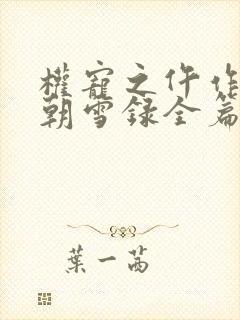 權寵之仵作
朝雪録全篇
葉一茜